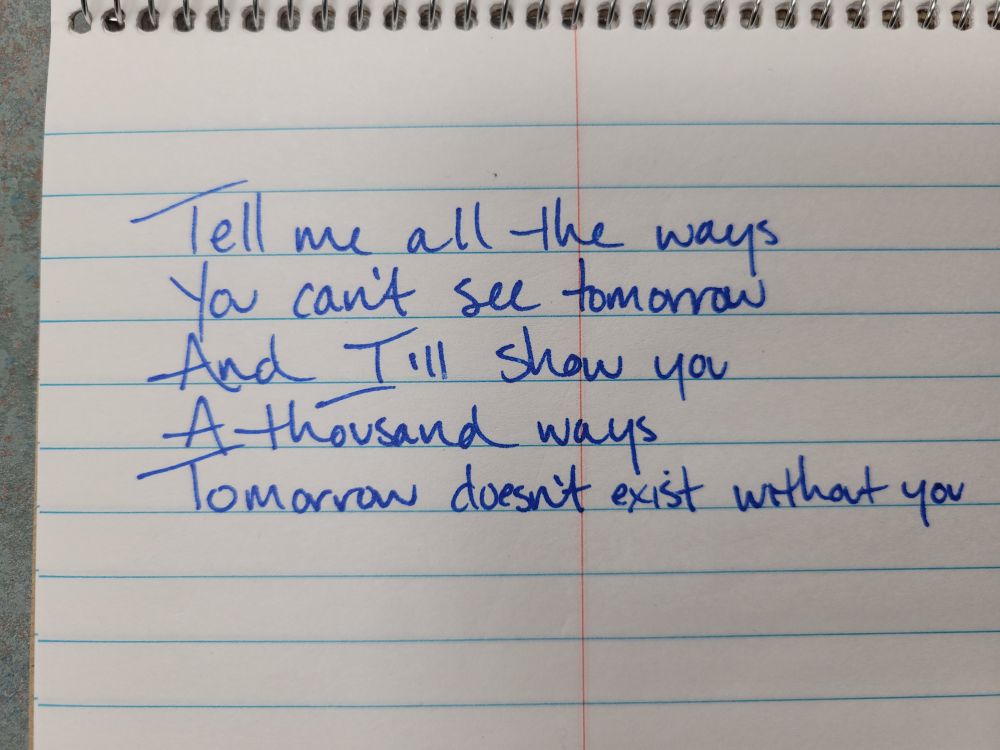 Tell me all the ways
You can't see tomorrow
And I'll show you
A thousand ways
Tomorrow doesn't exist without you